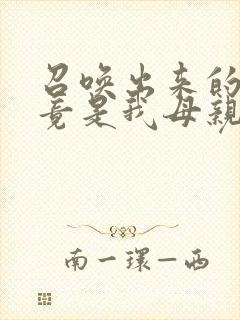 召唤出来的
竟是我母親
南一環—西